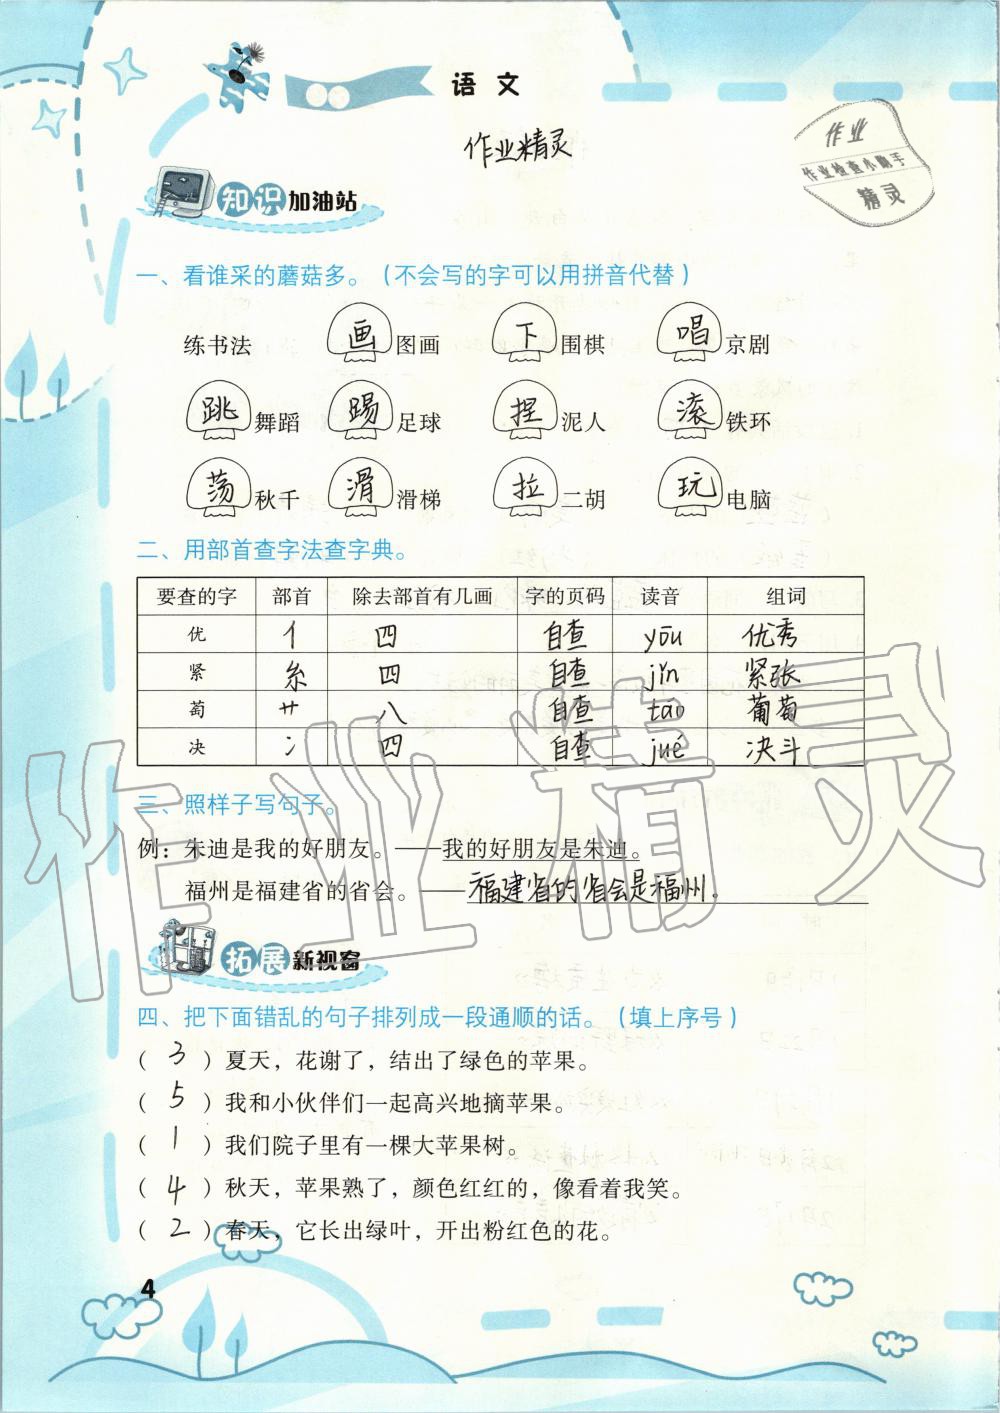 语文
作业精灵
作业
作业检查小助手
精灵
知识加油站
一、看谁采的蘑菇多。(不会写的字可以用拼音代替)
练书法 画图画 下围棋 唱京剧
跳舞蹈 踢足球 捏泥人 滚铁环
荡秋千 滑滑梯 拉二胡 玩电脑
二、用部首查字法查字典。
要查的字 部首 除去部首有几画 字的页码 读音 组词
优 亻 四 自查 yōu 优秀
紧 糸 四 自查 jǐn 紧张
萄 艹 八 自查 tao 葡萄
决 冫 四 自查 jué 决斗
三、照样子写句子。
例：朱迪是我的好朋友。——我的好朋友是朱迪。
福州是福建省的省会。——福建省的省会是福州。
拓展新视窗
四、把下面错乱的句子排列成一段通顺的话。(填上序号)
( 3 )夏天，花谢了，结出了绿色的苹果。
( 5 )我和小伙伴们一起高兴地摘苹果。
( 1 )我们院子里有一棵大苹果树。
( 4 )秋天，苹果熟了，颜色红红的，像看着我笑。
( 2 )春天，它长出绿叶，开出粉红色的花。
4
作业精灵